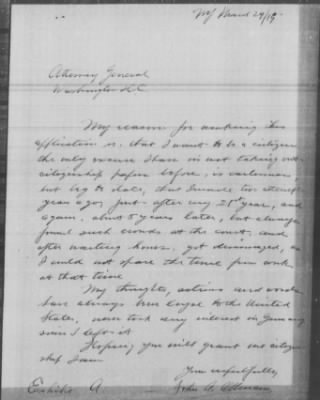 NY March 29/18
Attorney General
Washington D.C.
My reason for making this
application is, that I want to be a citizen
the only excuse I have in not taking out
citizenship papers before, is carelessness,
but beg to state, that I made two attempts
years ago, just after my 21st year, and
again, about 5 years later, but always
found such crowds at the court, and
after waiting hours, got discouraged, as
I could not spare the time from work
at that time
My thoughts, actions and words
have always been loyal to the United
States, never took any interest in Germany
since I left it
Hoping you will grant me citizen
ship I am
Yours respectfully,
John A.
Exhibit A